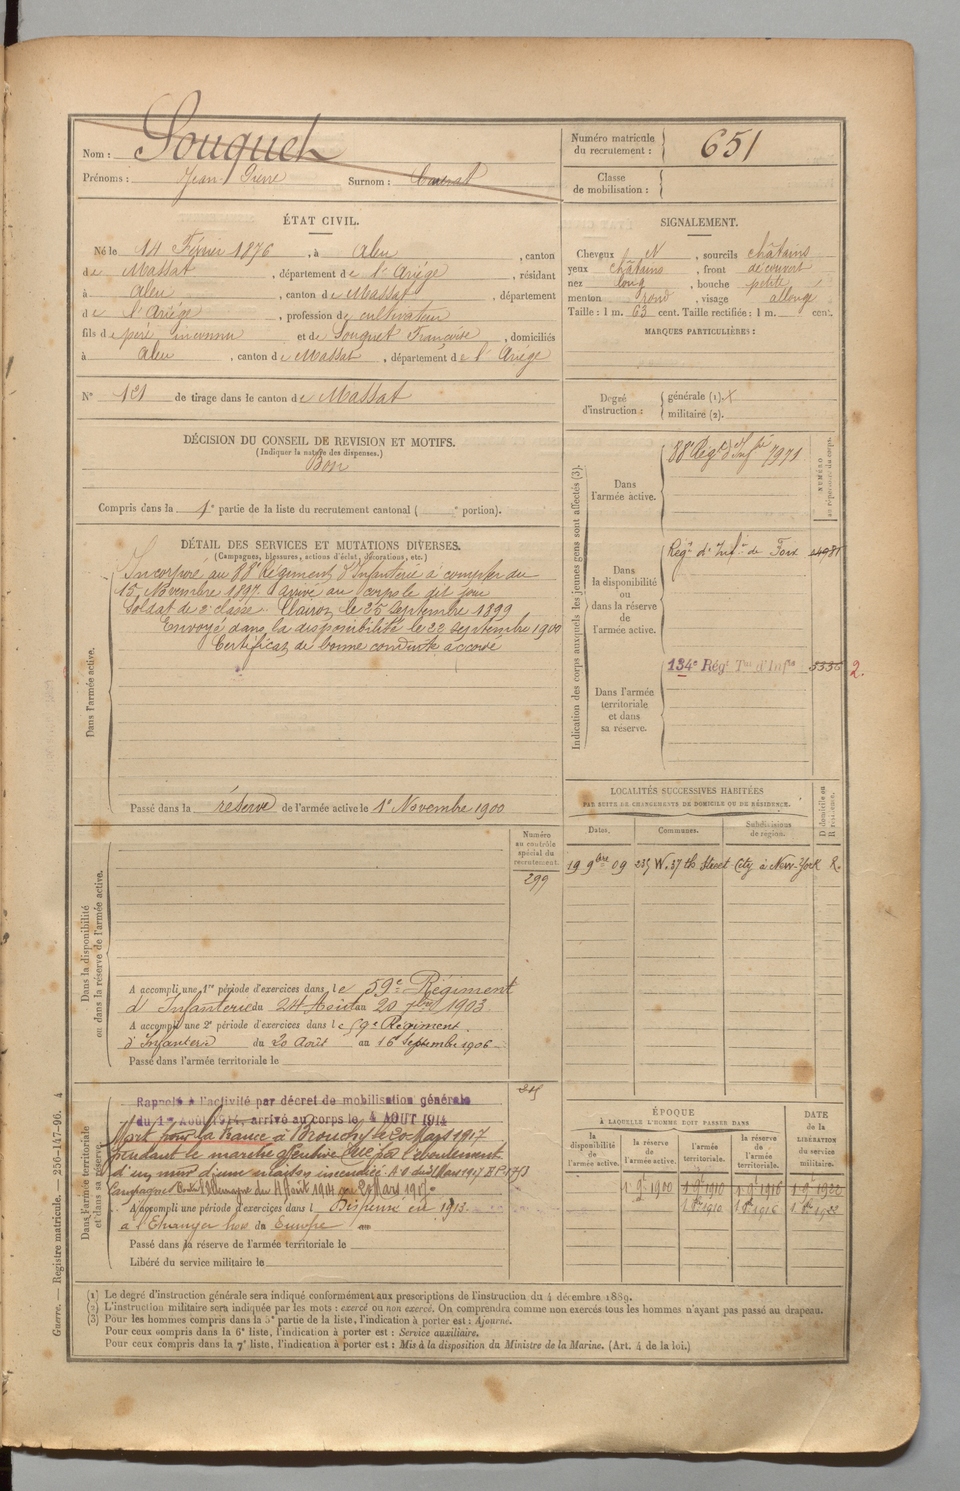 Nom : Souquet
Prénoms : Jean Pierre Surnom :
Numéro matricule du recrutement : 651
Classe de mobilisation :
ÉTAT CIVIL.
Né le 14 Février 1876, à Aleu, canton
de Massat, département de l'Ariège, résidant
à Aleu, canton de Massat, département
de l'Ariège, profession de cultivateur
fils de père inconnu et de Souquet Françoise, domiciliés
à Aleu, canton de Massat, département de l'Ariège
N° 121 de tirage dans le canton de Massat
SIGNALEMENT.
Cheveux N, sourcils châtains
yeux châtains, front découvert
nez long, bouche petite
menton rond, visage allongé
Taille : 1 m. 63 cent. Taille rectifiée : 1 m. cent.
MARQUES PARTICULIÈRES :
Degré d'instruction : générale (1).
militaire (2).
DÉCISION DU CONSEIL DE REVISION ET MOTIFS.
(Indiquer la nature des dispenses.)
Bon
Compris dans la 1e partie de la liste du recrutement cantonal ( e portion).
DÉTAIL DES SERVICES ET MUTATIONS DIVERSES.
(Campagnes, blessures, actions d'éclat, décorations, etc.)
Dans l'armée active.
Incorporé au 88e Régiment d'Infanterie à compter du
15 Novembre 1897. Arrivé au corps le dit jour
Soldat de 2e classe. Clairon le 25 septembre 1899
Envoyé dans la disponibilité le 22 septembre 1900
Certificat de bonne conduite accordé
Passé dans la réserve de l'armée active le 1er Novembre 1900
Indication des corps auxquels les jeunes gens sont affectés (3).
NUMÉRO au répertoire du corps.
Dans l'armée active.
88e Régt d'Infie 7971
Dans la disponibilité ou dans la réserve de l'armée active.
Régt d'Infie de Foix
Dans l'armée territoriale et dans sa réserve.
134e Régt Tal d'Infie
2.
LOCALITÉS SUCCESSIVES HABITÉES
PAR SUITE DE CHANGEMENTS DE DOMICILE OU DE RÉSIDENCE.
D domicile ou R résidence.
Dates. Communes. Subdivisions de région.
19 9bre 09 235 W. 37 th Street City à New-York R.
Numéro au contrôle spécial du recrutement.
299
Dans la disponibilité ou dans la réserve de l'armée active.
A accompli une 1re période d'exercices dans le 59e Régiment
d'Infanterie du 24 Août au 20 7bre 1903
A accompli une 2e période d'exercices dans le 59e Régiment
d'Infanterie du 20 Août au 16 septembre 1906
Passé dans l'armée territoriale le
Dans l'armée territoriale et dans sa réserve.
Rappelé à l'activité par décret de mobilisation générale
du 1er Août 1914. arrivé au corps le 4 AOUT 1914
Mort pour la France à Brouchy le 20 Mars 1917
d'un mur d'une maison incendiée
A accompli une période d'exercices dans l Dispensé en 1913
à l'Etranger hors du Europe au
Passé dans la réserve de l'armée territoriale le
Libéré du service militaire le
ÉPOQUE
À LAQUELLE L'HOMME DOIT PASSER DANS
la disponibilité de l'armée active.
la réserve de l'armée active.
l'armée territoriale.
la réserve de l'armée territoriale.
DATE de la LIBÉRATION du service militaire.
(1) Le degré d'instruction générale sera indiqué conformément aux prescriptions de l'instruction du 4 décembre 1889.
(2) L'instruction militaire sera indiquée par les mots : exercé ou non exercé. On comprendra comme non exercés tous les hommes n'ayant pas passé au drapeau.
(3) Pour les hommes compris dans la 5e partie de la liste, l'indication à porter est : Ajourné.
Pour ceux compris dans la 6e liste, l'indication à porter est : Service auxiliaire.
Pour ceux compris dans la 7e liste, l'indication à porter est : Mis à la disposition du Ministre de la Marine. (Art. 4 de la loi.)
Guerre. — Registre matricule. — 256-147-96. 4